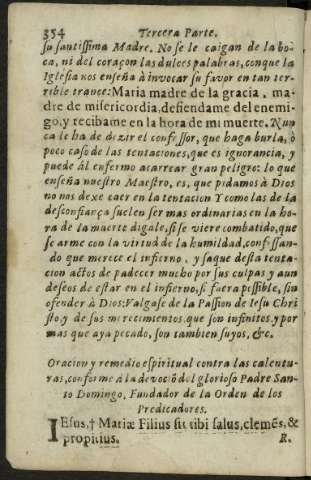 354 Tercera Parte.
su santissima Madre. No se le caigan de la bo-
ca, ni del coraçon las dulces palabras, con que la
Iglesia nos enseña à invocar su favor en tan ter-
rible trance: Maria madre de la gracia, ma-
dre de misericordia, defiendame del enemi-
go, y recibame en la hora de mi muerte. Nun
ca le ha de dezir el confessor, que haga burla, ò
poco caso de las tentaciones, que es ignorancia, y
puede ál enfermo acarrear gran peligro: lo que
enseña nuestro Maestro, es, que pidamos à Dios
no nos dexe caer en la tentacion Y como las de la
desconfiança suelen ser mas ordinarias en la ho-
ra de la muerte digale, si se viere combatido, que
se arme con la virtud de la humildad, confessan-
do que merece el infierno, y saque desta tenta-
cion actos de padecer mucho por sus culpas y aun
deseos de estar en el infierno, si fuera possible, sin
ofender à Dios: Valgase de la Passion de Iesu Chri
sto, y de sus merecimientos, que son infinitos, y por
mas que aya pecado, son tambien suyos, &c.
Oracion y remedio espiritual contra las calentu-
ras, conforme á la devociõ del glorioso Padre San-
to Domingo, Fundador de la Orden de los
Predicadores.
IEsus, † Mariæ Filius sit tibi salus, clemẽs, &
propitius. R.